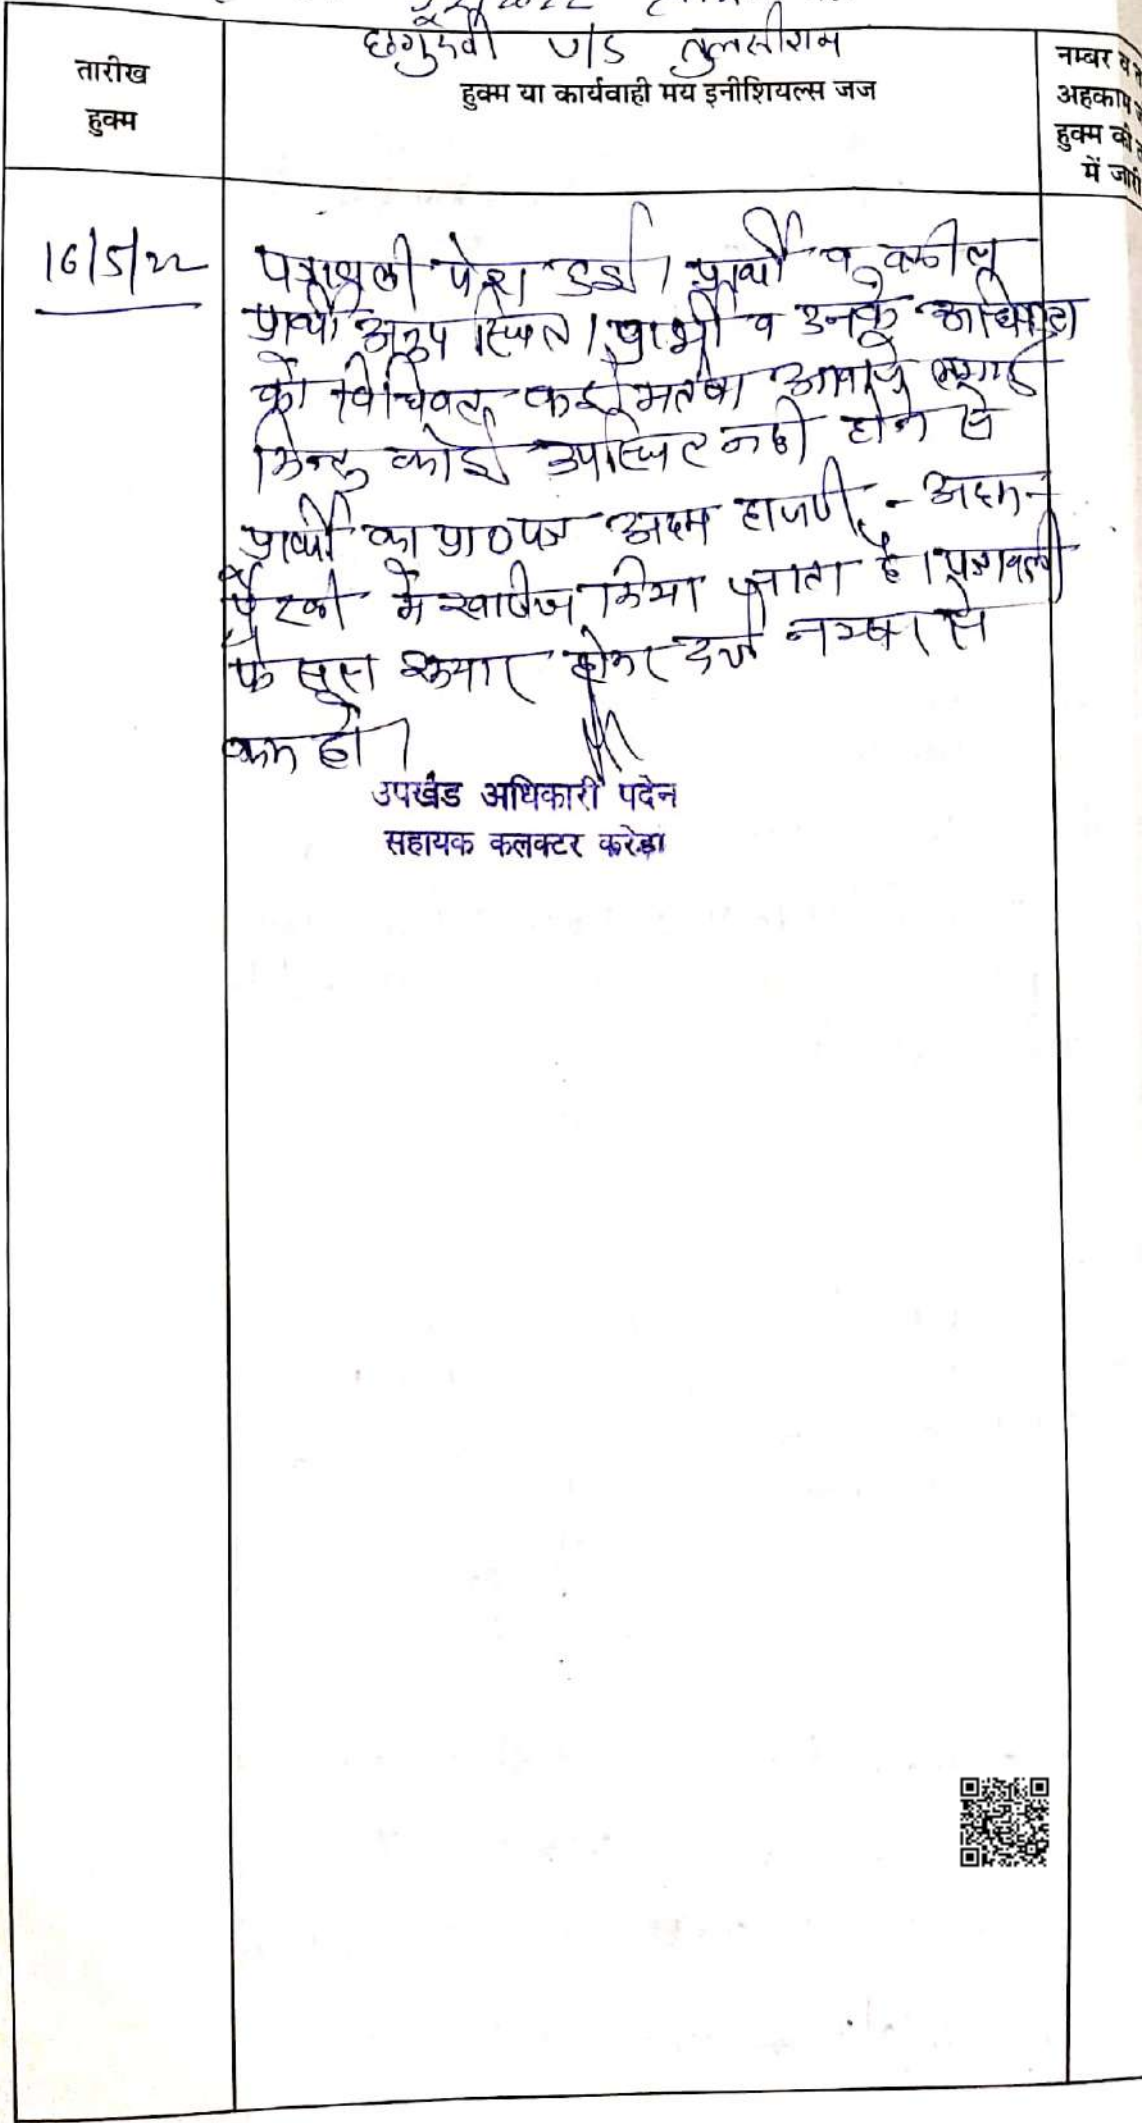 छगुदेवी v/s तुलसीराम
तारीख
हुक्म
हुक्म या कार्यवाही मय इनीशियल्स जज
नम्बर व
अहकाम
हुक्म की
में जारी
16/5/22
पत्रावली पेश हुई। प्रार्थी व वकील
प्रार्थी अनुपस्थित। प्रार्थी व उनके अधिवक्ता
को विधिवत कई मर्तबा आवाजे लगाई
किन्तु कोई उपस्थित नही होने से
प्रार्थी का प्रा०पत्र अदम हाजरी - अदम-
पैरवी मे खारीज किया जाता है। पत्रावली
फैसूल शुमार होकर दर्ज नम्बर से
कम हो।
उपखंड अधिकारी पदेन
सहायक कलक्टर करेडा